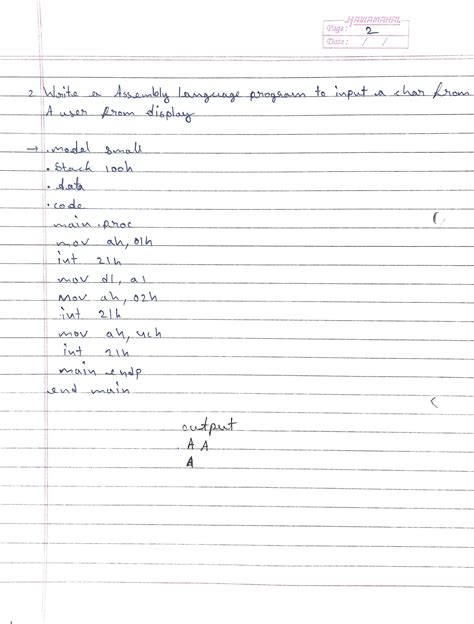 NAVAMAHAL
Page: 2
Date: / /
2 Write a Assembly Language program to input a char from
A user from display
→ .model small
.Stack 100h
.data
.code
main proc
mov ah, 01h
int 21h
mov dl, al
Mov ah, 02h
int 21h
mov ah, 4ch
int 21h
main endp
end main
output
A A
A